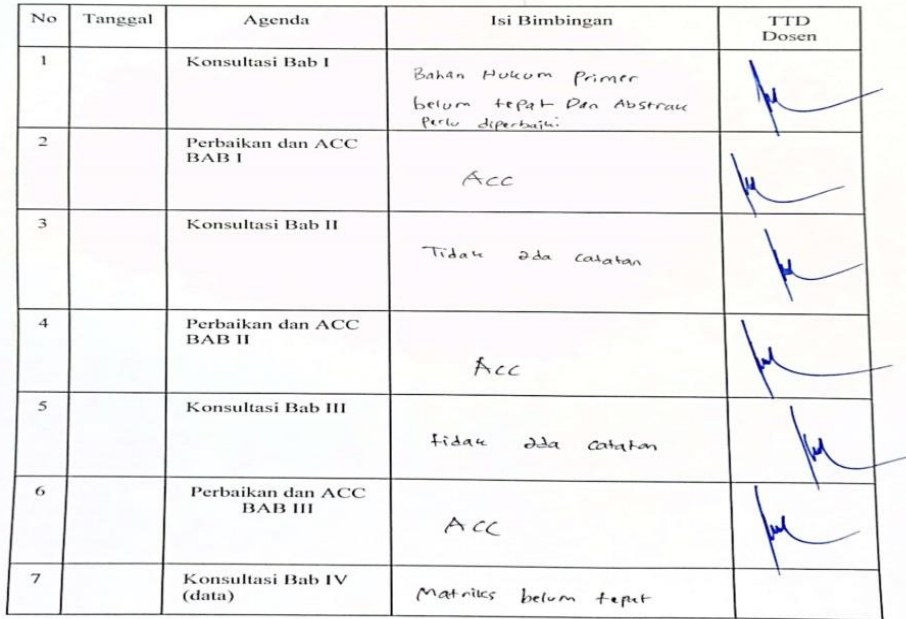 No Tanggal Agenda Isi Bimbingan TTD
Dosen
1 Konsultasi Bab I
Bahan Hukum Primer
belum tepat Dan Abstrak
Perlu diperbaiki
2 Perbaikan dan ACC
BAB I
Acc
3 Konsultasi Bab II
Tidak ada catatan
4 Perbaikan dan ACC
BAB II
Acc
5 Konsultasi Bab III
tidak ada catatan
6 Perbaikan dan ACC
BAB III
ACC
7 Konsultasi Bab IV
(data)
Matriks belum tepat